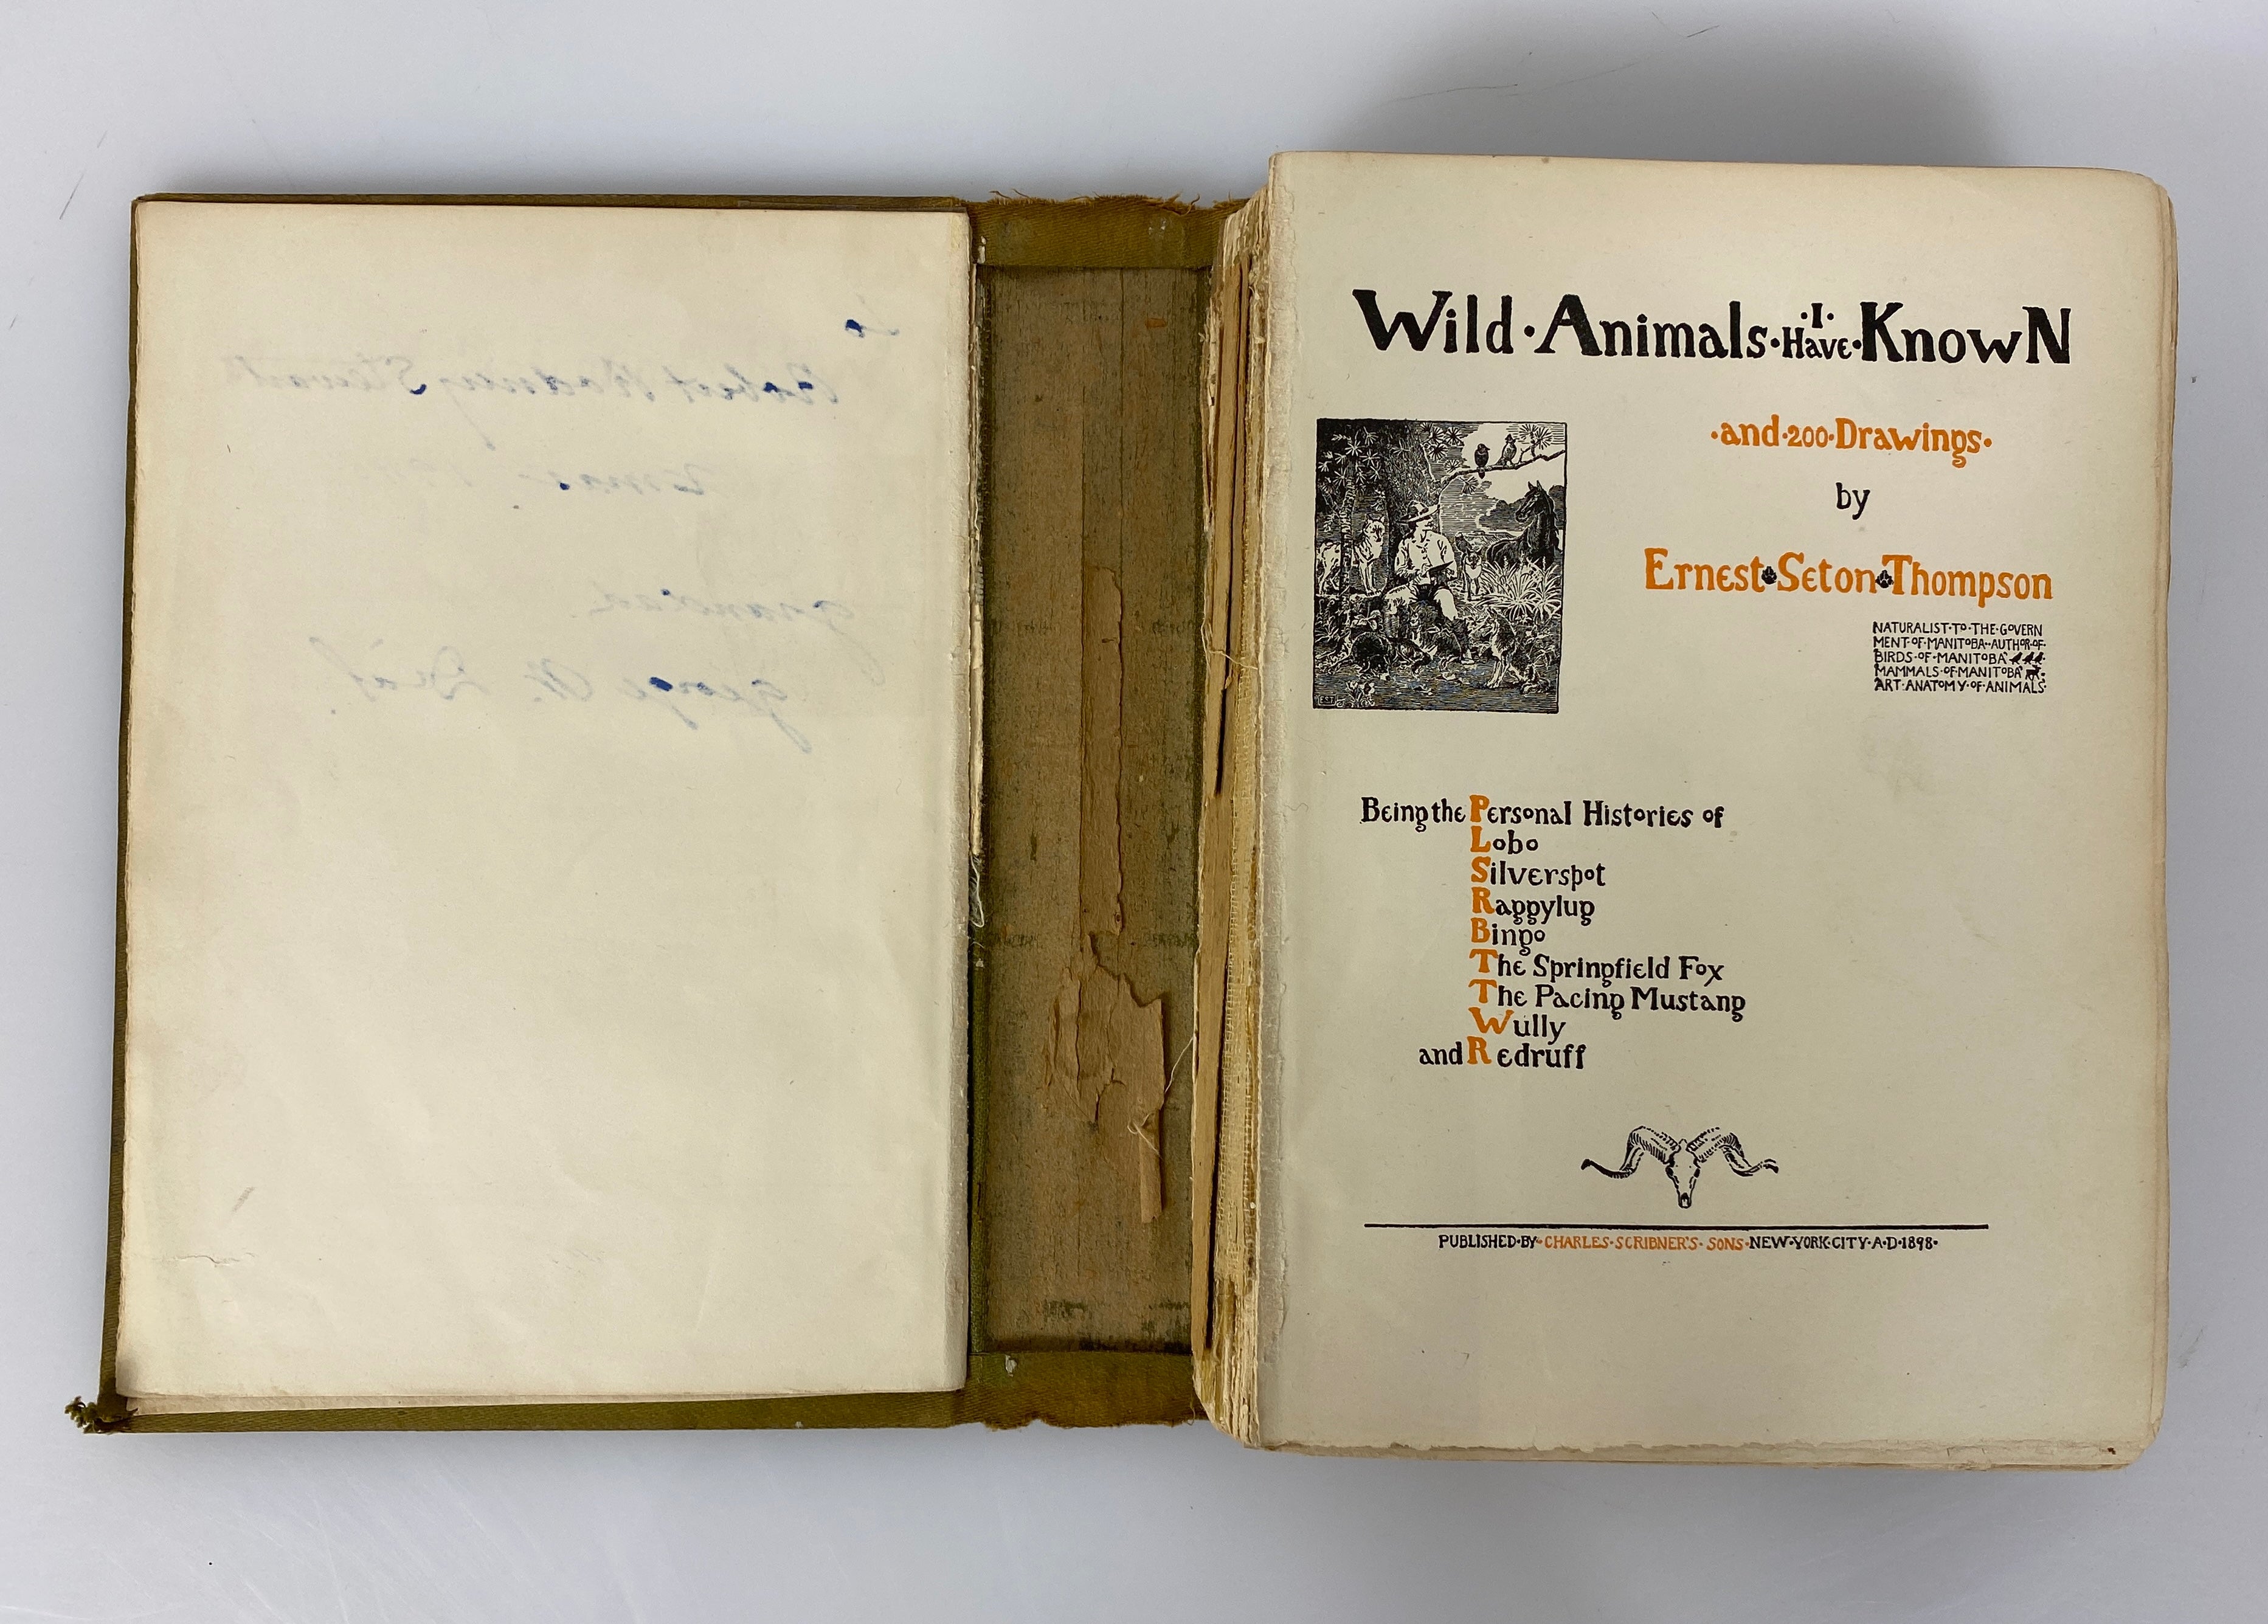 To
Robert Rodney Stewart
George W.
Wild · Animals · I · Have · Known
· and · 200 · Drawings ·
by
Ernest Seton Thompson
NATURALIST · TO · THE · GOVERN
MENT · OF · MANITOBA · AUTHOR · OF ·
BIRDS · OF · MANITOBA
MAMMALS · OF · MANITOBA
ART · ANATOMY · OF · ANIMALS ·
Being the Personal Histories of
Lobo
Silverspot
Raggylug
Bingo
The Springfield Fox
The Pacing Mustang
Wully
and Redruff
PUBLISHED · BY · CHARLES · SCRIBNER'S · SONS · NEW · YORK · CITY · A · D · 1898 ·